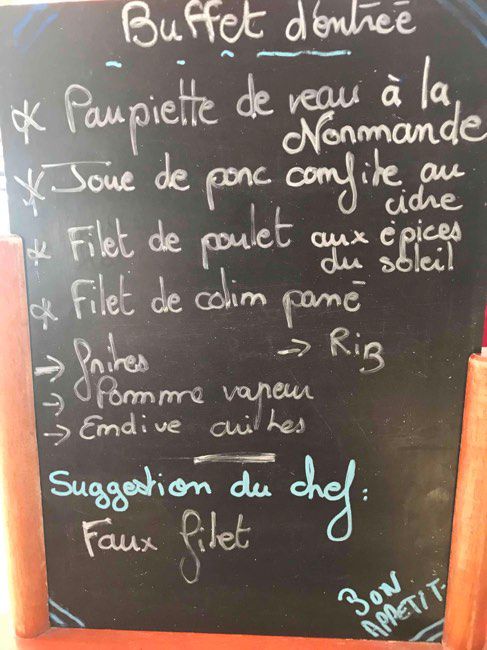 Buffet d'entrée
* Paupiette de veau à la
Normande
* Joue de porc confite au
cidre
* Filet de poulet aux épices
du soleil
* Filet de colin pané
→ frites → Riz
→ Pomme vapeur
→ Endive cuites
Suggestion du chef :
Faux filet
BON
APPETIT